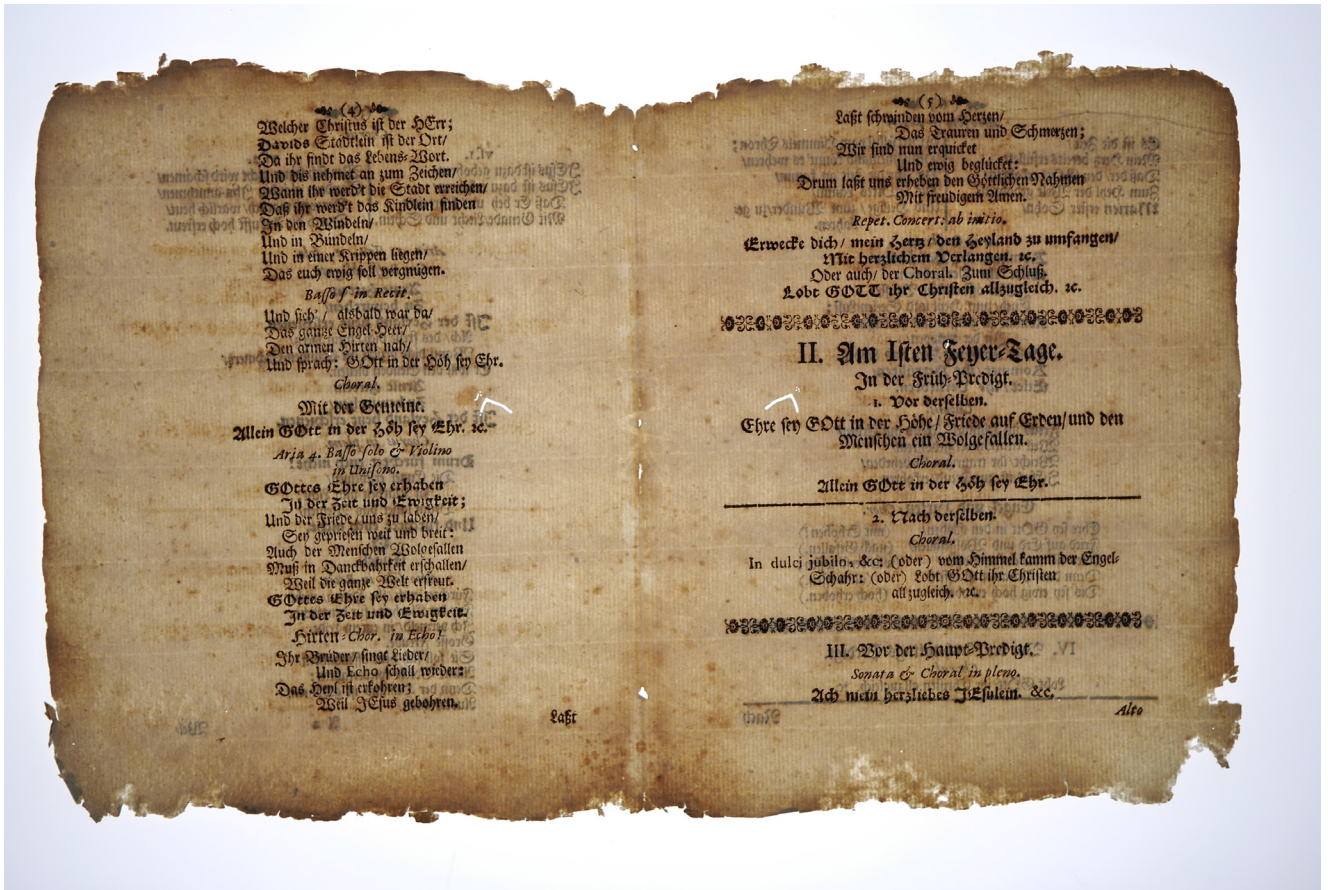 (4)
Welcher Christus ist der HErr;
Davids Stadtlein ist der Ort/
Da ihr findt das Lebens-Wort.
Und dis nehmet an zum Zeichen/
Wann ihr werd't die Stadt erreichen/
Daß ihr werd't das Kindlein finden
In den Windeln/
Und in Bündeln/
Und in einer Krippen liegen/
Das euch ewig soll vergnügen.
Basso s in Recit.
Und sich / alsbald war da/
Das gantze Engel-Heer/
Den armen Hirten nah/
Und sprach: GOtt in der Höh sey Ehr.
Choral.
Mit der Gemeine.
Allein GOtt in der Höh sey Ehr. ꝛc.
Aria 4. Basso solo & Violino
in Unisono.
GOttes Ehre sey erhaben
In der Zeit und Ewigkeit;
Und der Friede/uns zu laben/
Sey gepriesen weit und breit:
Auch der Menschen Wolgefallen
Muß in Danckbahrkeit erschallen/
Weil die gantze Welt erfreut.
GOttes Ehre sey erhaben
In der Zeit und Ewigkeit.
Hirten-Chor. in Echo!
Ihr Brüder/singt Lieder/
Und Echo schall wieder:
Das Heyl ist erkohren;
Weil JEsus gebohren.
Laßt
(5)
Laßt schwinden vom Herzen/
Das Trauren und Schmerzen;
Wir sind nun erquicket
Und ewig beglücket:
Drum laßt uns erheben den Göttlichen Nahmen
Mit freudigem Amen.
Repet. Concert: ab initio.
Erwecke dich/ mein Hertz/ den Heyland zu umfangen/
Mit herzlichem Verlangen. ꝛc.
Oder auch/ der Choral. Zum Schluß.
Lobt GOTT ihr Christen allzugleich. ꝛc.
II. Am Isten Feyer-Tage.
In der Früh-Predigt.
1. Vor derselben.
Ehre sey GOtt in der Höhe/ Friede auf Erden/und den
Menschen ein Wolgefallen.
Choral.
Allein GOtt in der Höh sey Ehr.
2. Nach derselben.
Choral.
In dulci jubilo, &c: (oder) vom Himmel kamm der Engel-
Schahr: (oder) Lobt GOtt ihr Christen
allzugleich. ꝛc.
III. Vor der Haupt-Predigt.
Sonata & Choral in pleno.
Ach mein herzliebes JEsulein. &c.
Alto